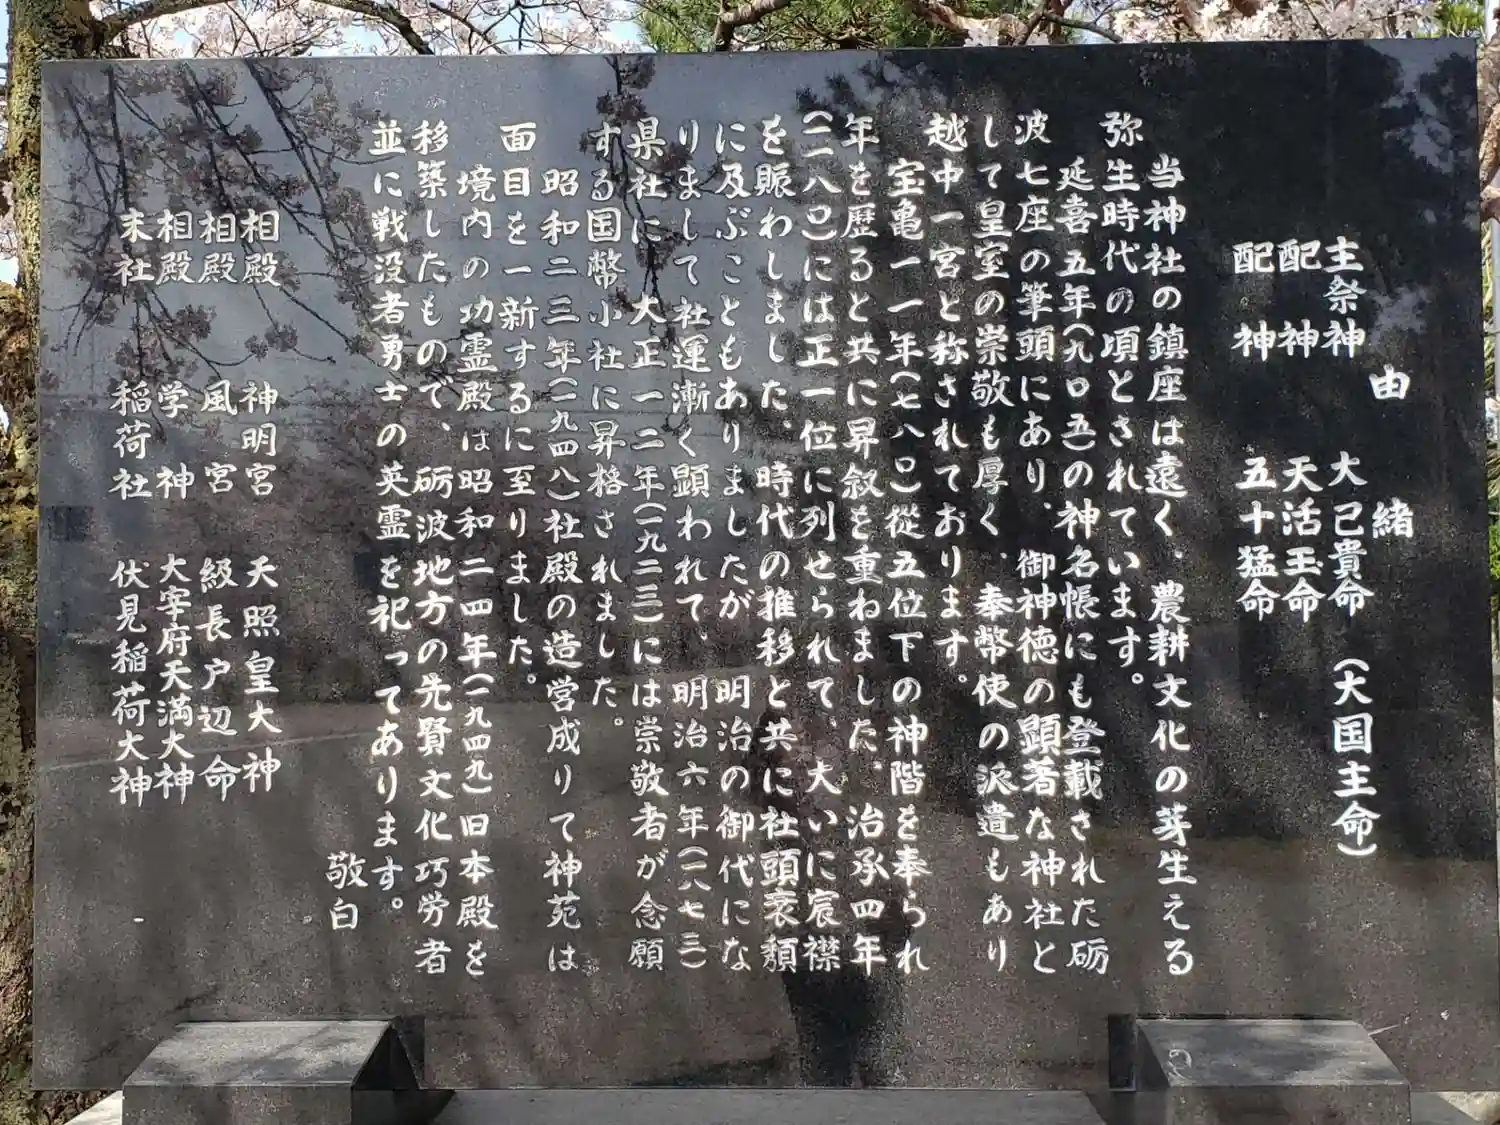 由緒
主祭神 大己貴命（大国主命）
配神 天活玉命
配神 五十猛命
当神社の鎮座は遠く、農耕文化の芽生える
弥生時代の頃とされています。
延喜五年（九〇五）の神名帳にも登載された砺
波七座の筆頭にあり、御神徳の顕著な神社と
して皇室の崇敬も厚く、奉幣使の派遣もあり
越中一宮と称されております。
宝亀一一年（七八〇）從五位下の神階を奉られ
年を歴ると共に昇叙を重ねました、治承四年
（一一八〇）には正一位に列せられて、大いに宸襟
を賑わしました、時代の推移と共に社頭衰頽
に及ぶこともありましたが、明治の御代にな
りまして社運漸く顕われて、明治六年（一八七三）
県社に、大正一二年（一九二三）には崇敬者が念願
する国幣小社に昇格されました。
昭和二三年（一九四八）社殿の造営成りて神苑は
面目を一新するに至りました。
境内の功霊殿は昭和二四年（一九四九）旧本殿を
移築したもので、砺波地方の先賢文化巧労者
並に戦没者勇士の英霊を祀ってあります。
敬白
相殿 神明宮 天照皇大神
相殿 風宮 級長戸辺命
相殿 学神 大宰府天満大神
末社 稲荷社 伏見稲荷大神